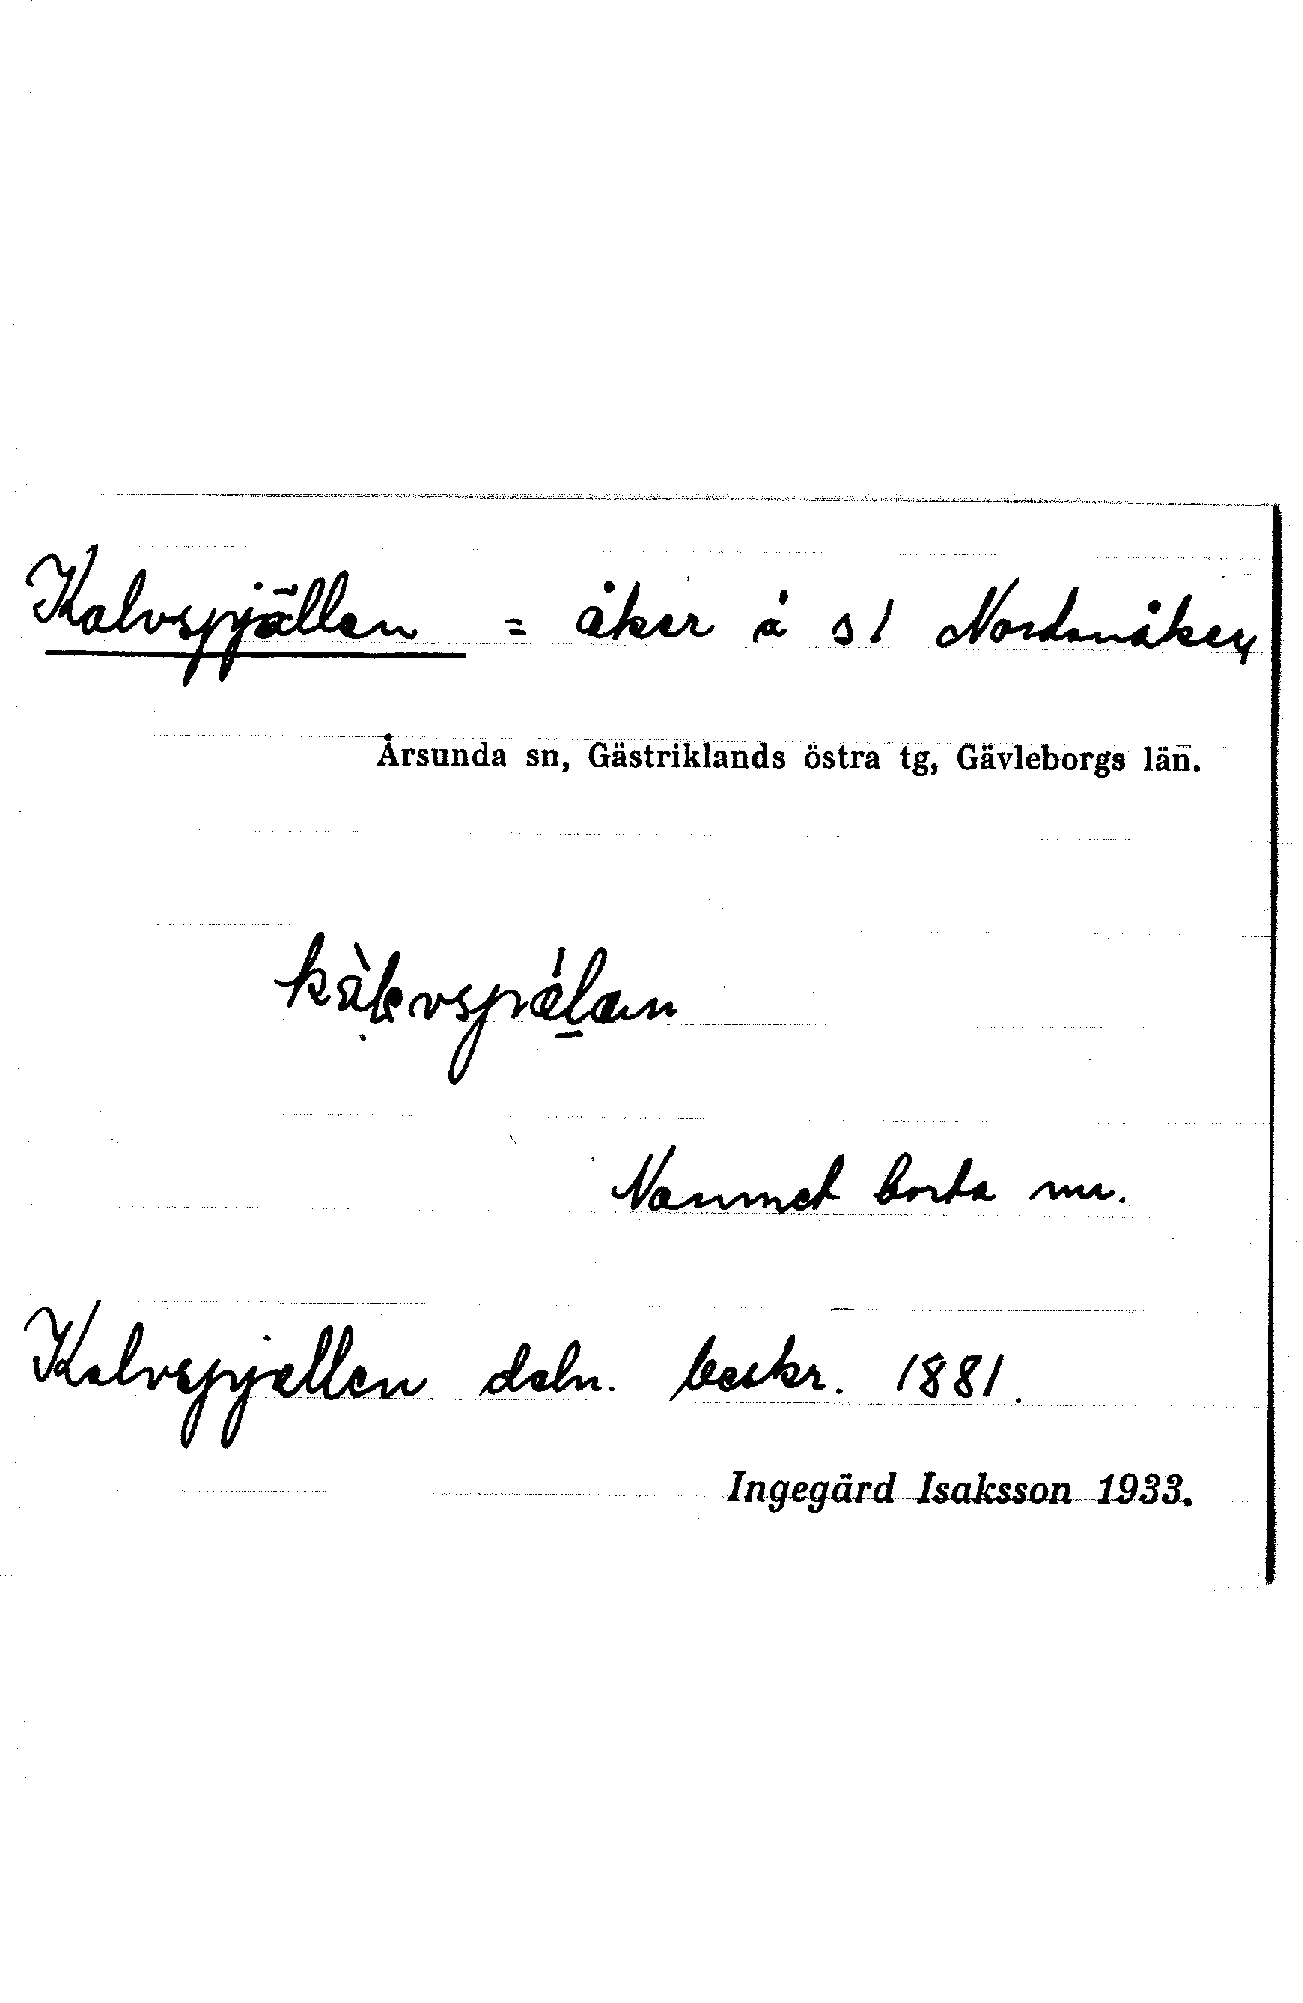 Kalvspjällen = åker å s1 Nordanåker
Årsunda sn, Gästriklands östra tg, Gävleborgs län.
Namnet borta nu.
Kalvspjellen deln. beskr. 1881.
Ingegärd Isaksson 1933.